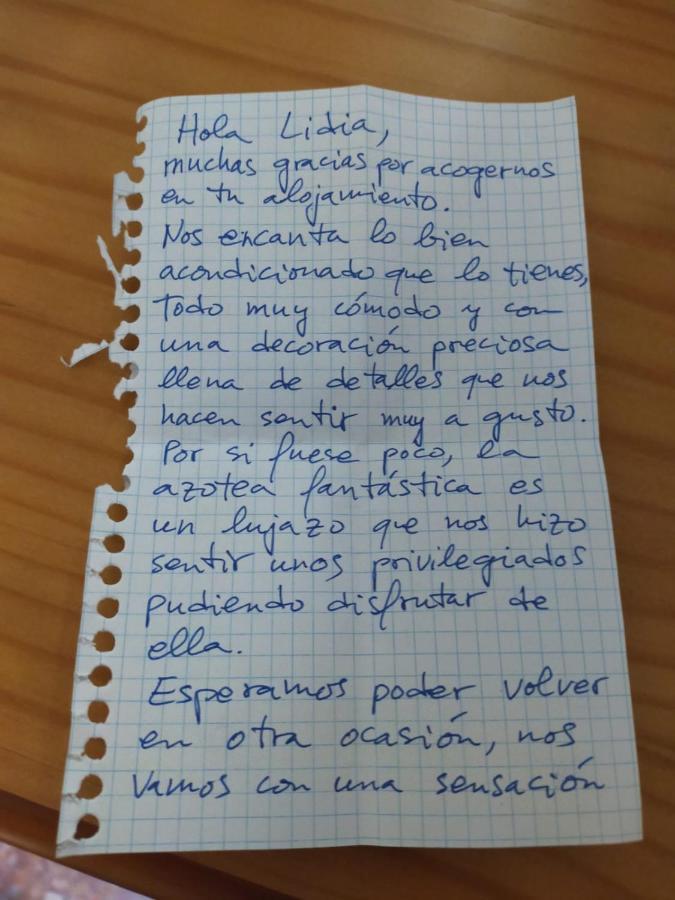 Hola Lidia,
muchas gracias por acogernos
en tu alojamiento.
Nos encanta lo bien
acondicionado que lo tienes,
Todo muy cómodo y con
una decoración preciosa
llena de detalles que nos
hacen sentir muy a gusto.
Por si fuese poco, la
azotea fantástica es
un lujazo que nos hizo
sentir unos privilegiados
pudiendo disfrutar de
ella.
Esperamos poder volver
en otra ocasión, nos
vamos con una sensación